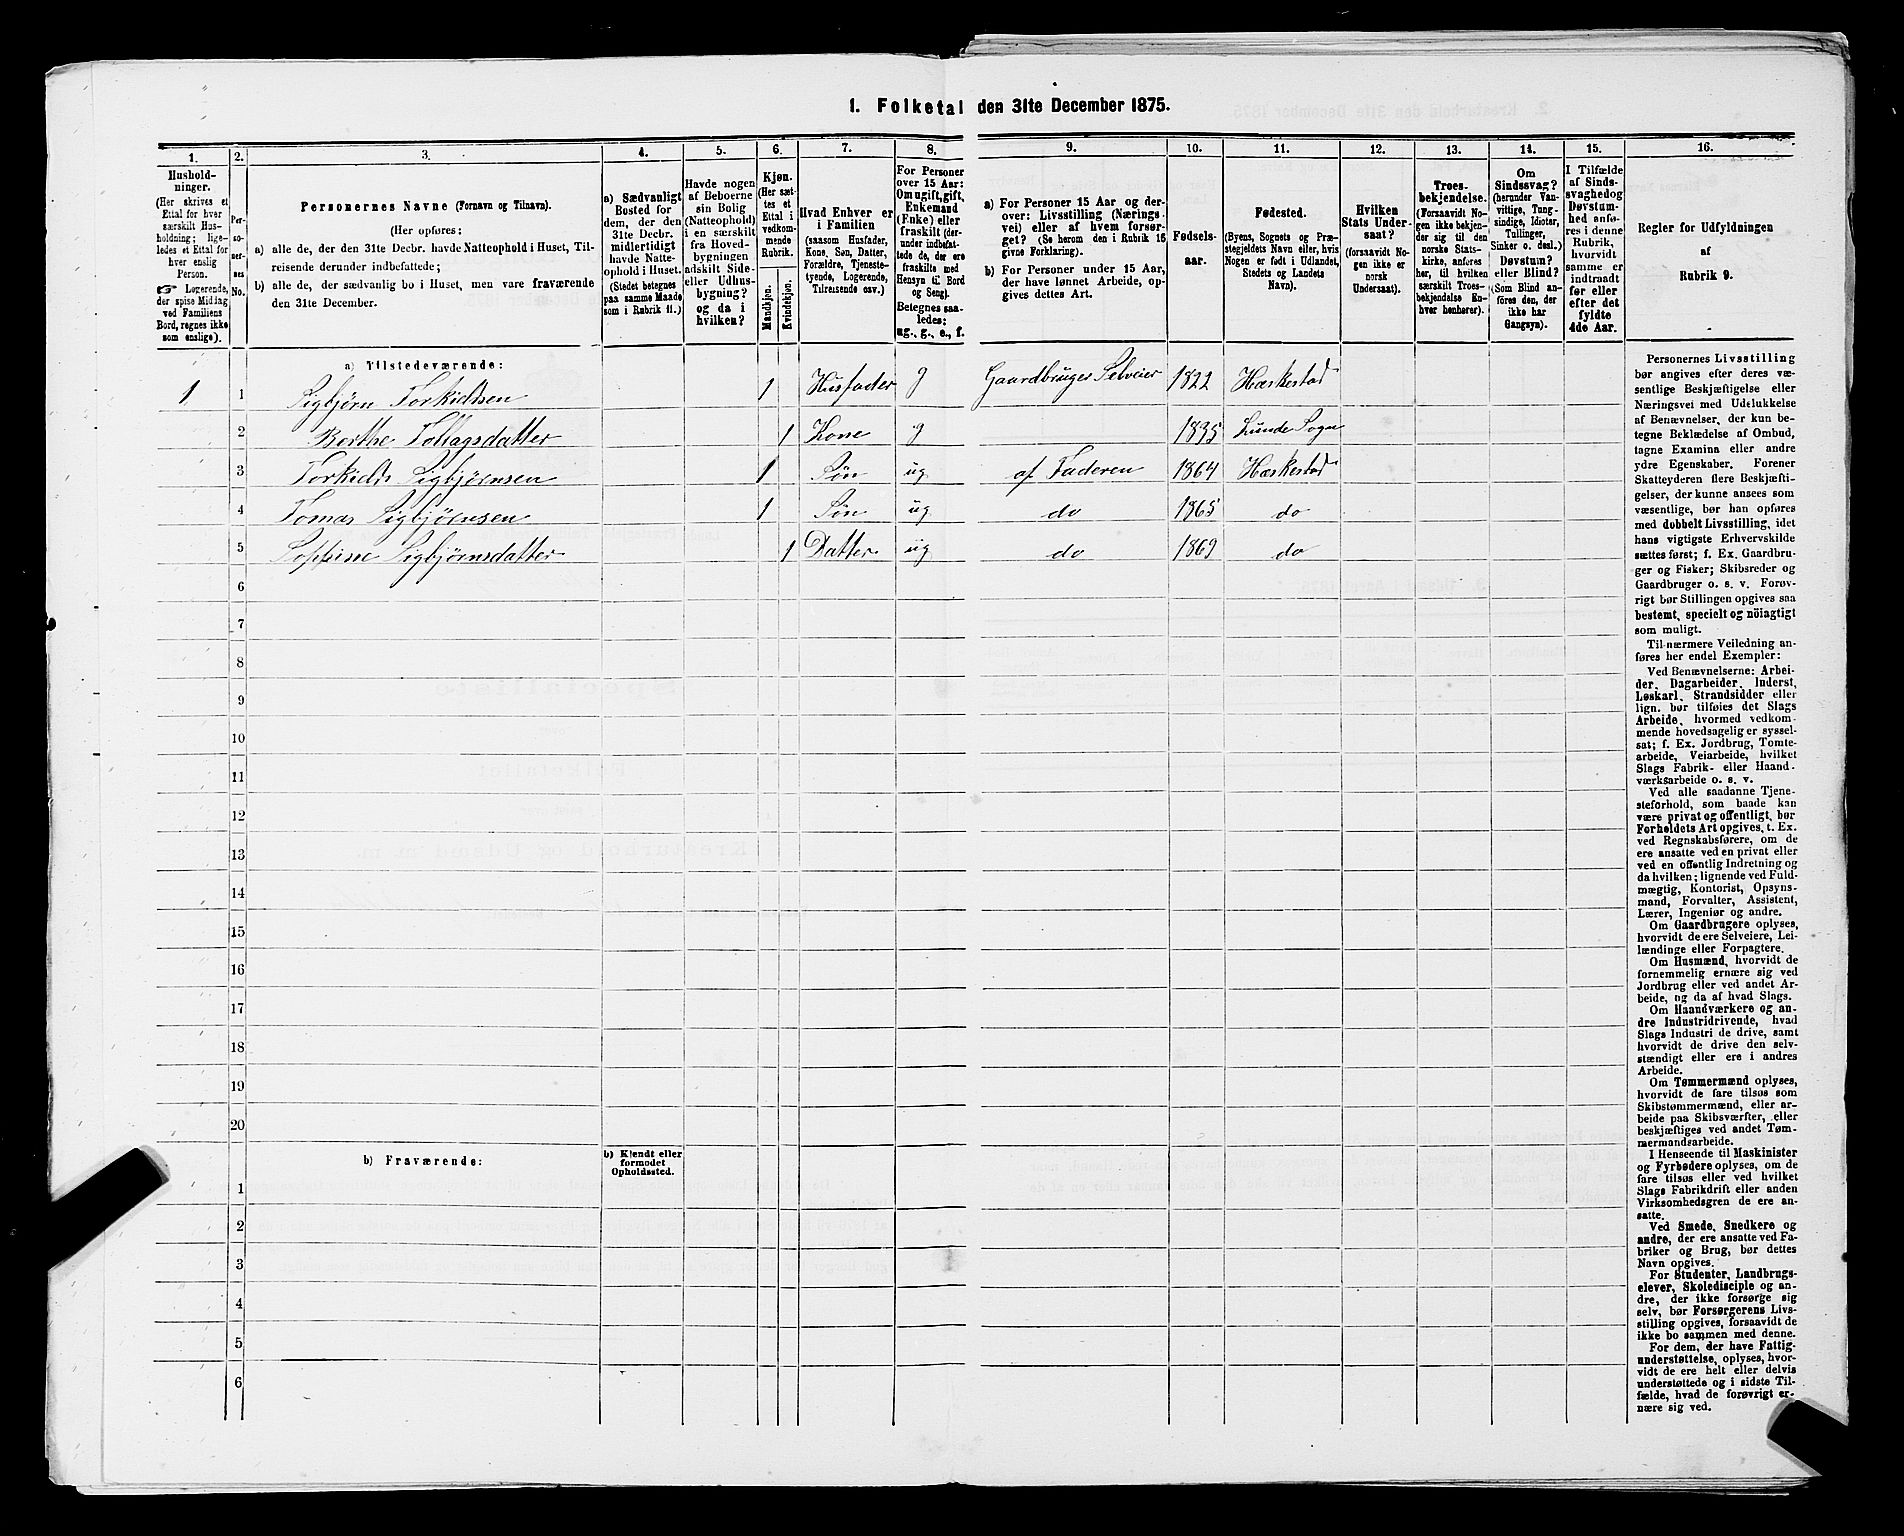 1. Folketal den 31te December 1875.
1. 2. 3. 4. 5. 6. 7. 8. 9. 10. 11. 12. 13. 14. 15. 16.
Hushold-
ninger.
(Her skrives et
Ettal for hver
særskilt Hus-
holdning; lige-
ledes et Ettal for
hver enslig
Person.
☞ Logerende,
der spise Middag
ved Familiens
Bord, regnes ikke
som enslige).
Per-
so-
ner-
nes
No.
Personernes Navne (Fornavn og Tilnavn).
(Her opføres:
a) alle de, der den 31te Decbr. havde Natteophold i Huset, Til-
reisende derunder indbefattede;
b) alle de, der sædvanlig bo i Huset, men vare fraværende
den 31te December.
a) Sædvanligt
Bosted for
dem, der den
31te Decbr.
midlertidigt
havde Natte-
ophold i Huset.
(Stedet betegnes
paa samme Maade
som i Rubrik 11.)
Havde nogen
af Beboerne
sin Bolig
(Natteophold)
i en særskilt
fra Hoved-
bygningen
adskilt Side-
eller Udhus-
bygning?
og da i
hvilken?
Kjøn.
(Her sæt-
tes et
Ettal i
vedkom-
mende
Rubrik.
Mandkjøn.
Kvindekjøn.
Hvad Enhver er
i Familien
(saasom Husfader,
Kone, Søn, Datter,
Forældre, Tjeneste-
tyende, Logerende,
Tilreisende osv.)
For Personer
over 15 Aar:
Om ugift, gift,
Enkemand
(Enke) eller
fraskilt (der-
under indbefat-
tede de, der ere
fraskilte med
Hensyn til Bord
og Seng).
Betegnes saa-
ledes:
ug., g., e., f.
a) For Personer 15 Aar og der-
over: Livsstilling (Nærings-
vei) eller af hvem forsør-
get? (Se herom den i Rubrik 16
givne Forklaring).
b) For Personer under 15 Aar,
der have lønnet Arbeide, op-
gives dettes Art.
Fødsels-
aar.
Fødested.
(Byens, Sognets og Præ-
stegjeldets Navn eller, hvis
Nogen er født i Udlandet,
Stedets og Landets
Navn).
Hvilken
Stats Under-
saat?
(forsaavidt No-
gen ikke er
norsk
Undersaat).
Troes-
bekjendelse.
(Forsaavidt No-
gen ikke bekjen-
der sig til den
norske Stats-
kirke, anføres
her, til hvilken
særskilt Troes-
bekjendelse En-
hver henhører).
Om
Sindssvag?
(herunder Van-
vittige, Tung-
sindige, Idioter,
Tullinger,
Sinker o. desl.).
Døvstum?
eller Blind?
(Som Blind an-
føres den, der
ikke har
Gangsyn).
I Tilfælde
af Sinds-
svaghed og
Døvstum-
hed anfø-
res i denne
Rubrik,
hvorvidt
samme er
indtraadt
før eller
efter det
fyldte
4de Aar.
Regler for Udfyldningen
af
Rubrik 9.
a) Tilstedeværende:
1 1 Sigbjørn Torkildsen 1 Husfader g Gaardbruger Selveier 1822 Hæskestad
2 Berthe Tollagsdatter 1 Kone g 1835 Lunde Sogn
3 Torkild Sigbjørnsen 1 Søn ug af Faderen 1864 Hæskestad
4 Tomas Sigbjørnsen 1 Søn ug do 1865 do
5 Soffine Sigbjørnsdatter 1 Datter ug do 1869 do
6
7
8
9
10
11
12
13
14
15
16
17
18
19
20
b) Fraværende:
b) Kjendt eller
formodet
Opholdssted.
1
2
3
4
5
6
Personernes Livsstilling
bør angives efter deres væ-
sentlige Beskjæftigelse eller
Næringsvei med Udelukkelse
af Benævnelser, der kun be-
tegne Beklædelse af Ombud,
tagne Examina eller andre
ydre Egenskaber. Forener
Skatteyderen flere Beskjæfti-
gelser, der kunne ansees som
væsentlige, bør han opføres
med dobbelt Livsstilling, idet
hans vigtigste Erhvervskilde
sættes først; f. Ex. Gaardbru-
ger og Fisker; Skibsreder og
Gaardbruger o. s. v. Forøv-
rigt bør Stillingen opgives saa
bestemt, specielt og nöiagtigt
som muligt.
Til nærmere Veiledning an-
føres her endel Exempler:
Ved Benævnelserne: Arbei-
der, Dagarbeider, Inderst,
Løskarl, Strandsidder eller
lign. bør tilføies det Slags
Arbeide, hvormed vedkom-
mende hovedsagelig er syssel-
sat; f. Ex. Jordbrug, Tomte-
arbeide, Veiarbeide, hvilket
Slags Fabrik- eller Haand-
værksarbeide o. s. v.
Ved alle saadanne Tjene-
steforhold, som baade kan
være privat og offentligt, bør
Forholdets Art opgives, t. Ex.
ved Regnskabsførere, om de
ere ansatte ved en privat eller
ved en offentlig Indretning og
da hvilken; lignende ved Fuld-
mægtig, Kontorist, Opsyns-
mand, Forvalter, Assistent,
Lærer, Ingeniør og andre.
Om Gaardbrugere oplyses,
hvorvidt de ere Selveiere, Lei-
lændinge eller Forpagtere.
Om Husmænd, hvorvidt de
fornemmelig ernære sig ved
Jordbrug eller ved andet Ar-
beide, og da af hvad Slags.
Om Haandværkere og an-
dre Industridrivende, hvad
Slags Industri de drive, samt
hvorvidt de drive den selv-
stændigt eller ere i andres
Arbeide.
Om Tømmermænd oplyses,
hvorvidt de fare tilsøs som
Skibstømmermænd, eller ar-
beide paa Skibsværfter, eller
beskjæftiges ved andet Tøm-
mermandsarbeide.
I Henseende til Maskinister
og Fyrbødere oplyses, om de
fare tilsøs eller ved hvilket
Slags Fabrikdrift eller anden
Virksomhedsgren de ere an-
satte.
Ved Smede, Snedkere og
andre, der ere ansatte ved Fa-
briker og Brug, bør dettes
Navn opgives.
For Studenter, Landbrugs-
elever, Skoledisciple og an-
dre, der ikke forsørge sig
selv, bør Forsørgerens Livs-
stilling opgives, forsaavidt de
ikke bo sammen med denne.
For dem, der have Fattig-
understøttelse, oplyses, hvor-
vidt de ere helt eller delvis
understøttede og i sidste Til-
fælde, hvad de forøvrigt er-
nære sig ved.